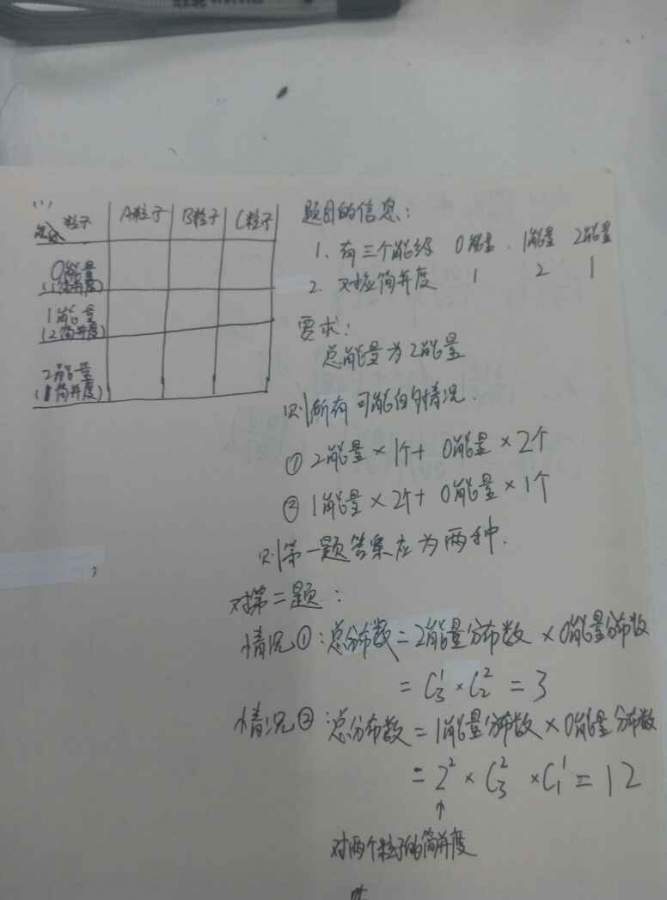 (1)
粒子 A粒子 B粒子 C粒子
0能量
(1简并度)
1能量
(2简并度)
2能量
(1简并度)
题目的信息:
1. 有三个能级 0能量 1能量 2能量
2. 对应简并度 1 2 1
要求:
总能量为2能量
则所有可能的情况.
① 2能量×1个+ 0能量×2个
② 1能量×2个+ 0能量×1个
则第一题答案应为两种.
对第二题:
情况①:总分布数=2能量分布数×0能量分布数
= C₃¹ × C₂² = 3
情况②:总分布数=1能量分布数×0能量分布数
= 2² × C₃² × C₁¹ = 12
↑
对两个粒子的简并度